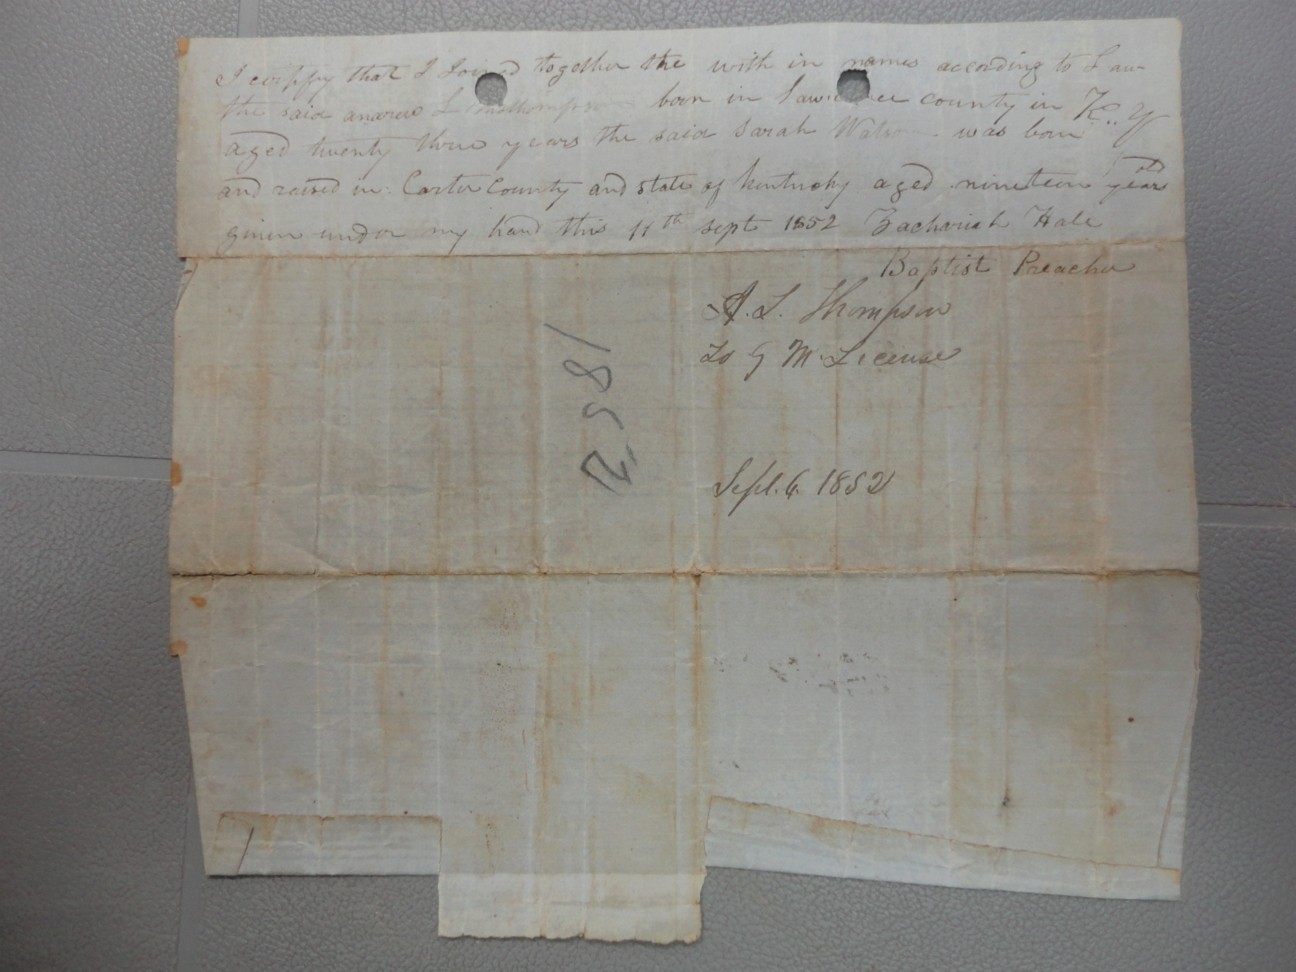 I certify that I Joined together the with in names according to Law
the said andrew L Thompson born in Lawrence county in K.Y
aged twenty three years the said Sarah Watson was born
and raised in Carter County and state of kentucky aged nineteen years old
given under my hand this 11th sept 1852 Zachariah Hale
Baptist Preacher
A. L. Thompson
To M. License
1852
Sept. 6. 1852